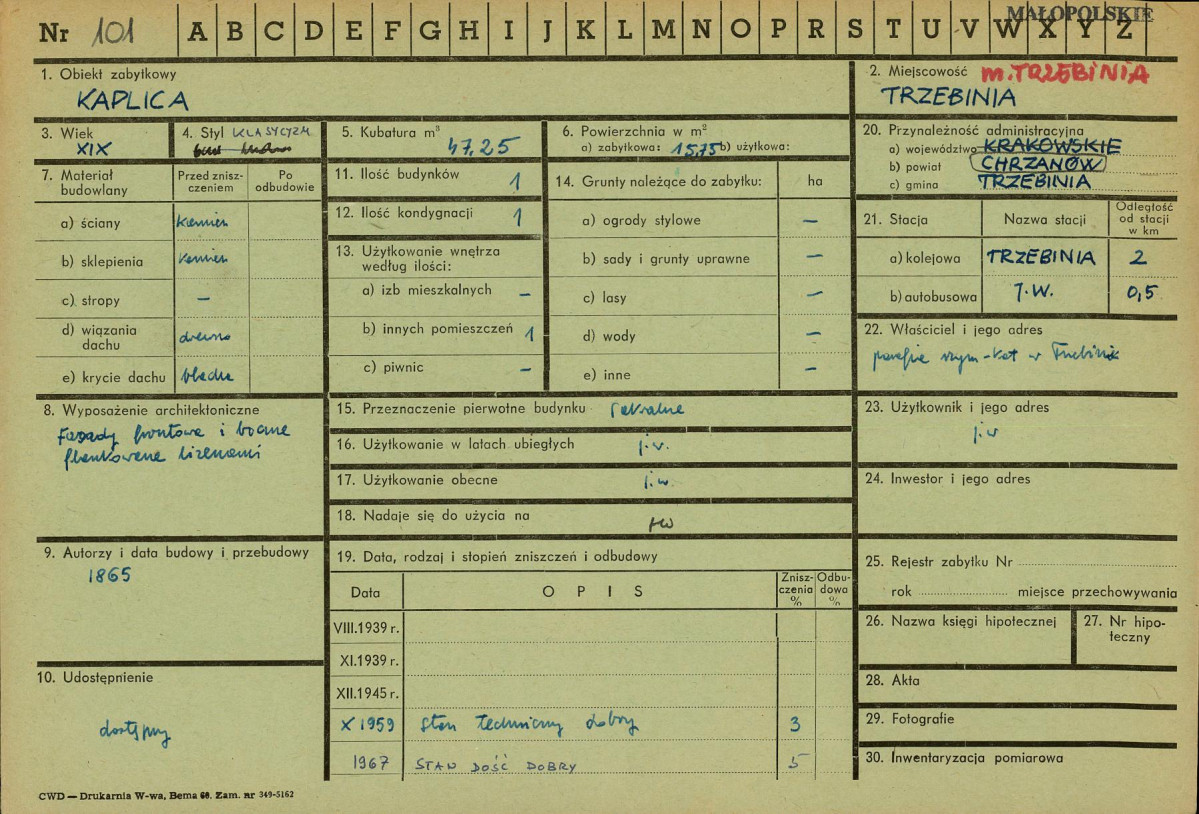 MAŁOPOLSKIE
Nr 101 A B C D E F G H I J K L M N O P R S T U V W X Y Z
1. Obiekt zabytkowy
KAPLICA
2. Miejscowość m. TRZEBINIA
TRZEBINIA
3. Wiek
XIX
4. Styl KLASYCYZM
5. Kubatura m³
47,25
6. Powierzchnia w m²
a) zabytkowa: 15,75 b) użytkowa:
20. Przynależność administracyjna
a) województwo KRAKOWSKIE
b) powiat CHRZANÓW
c) gmina TRZEBINIA
7. Materiał budowlany
Przed zniszczeniem
Po odbudowie
a) ściany kamień
b) sklepienia kamień
c) stropy –
d) wiązania dachu drewno
e) krycie dachu blacha
11. Ilość budynków 1
12. Ilość kondygnacji 1
13. Użytkowanie wnętrza
według ilości:
a) izb mieszkalnych –
b) innych pomieszczeń 1
c) piwnic –
14. Grunty należące do zabytku: ha
a) ogrody stylowe –
b) sady i grunty uprawne –
c) lasy –
d) wody –
e) inne –
21. Stacja
Nazwa stacji
Odległość
od stacji
w km
a) kolejowa TRZEBINIA 2
b) autobusowa J.W. 0,5
22. Właściciel i jego adres
parafia rzym-kat w Trzebini
8. Wyposażenie architektoniczne
Fasady frontowe i boczne
flankowane lizenami
15. Przeznaczenie pierwotne budynku sakralne
16. Użytkowanie w latach ubiegłych j.w.
17. Użytkowanie obecne j.w.
18. Nadaje się do użycia na jw
23. Użytkownik i jego adres
j.w
24. Inwestor i jego adres
9. Autorzy i data budowy i przebudowy
1865
19. Data, rodzaj i stopień zniszczeń i odbudowy
Data
O P I S
Zniszczenia
%
Odbudowa
%
VIII.1939 r.
XI.1939 r.
XII.1945 r.
X 1959 Stan techniczny dobry 3
1967 STAN DOŚĆ DOBRY 5
25. Rejestr zabytku Nr
rok miejsce przechowywania
26. Nazwa księgi hipotecznej
27. Nr hipoteczny
28. Akta
29. Fotografie
30. Inwentaryzacja pomiarowa
10. Udostępnienie
dostępny
CWD — Drukarnia W-wa, Bema 60. Zam. nr 349-5162